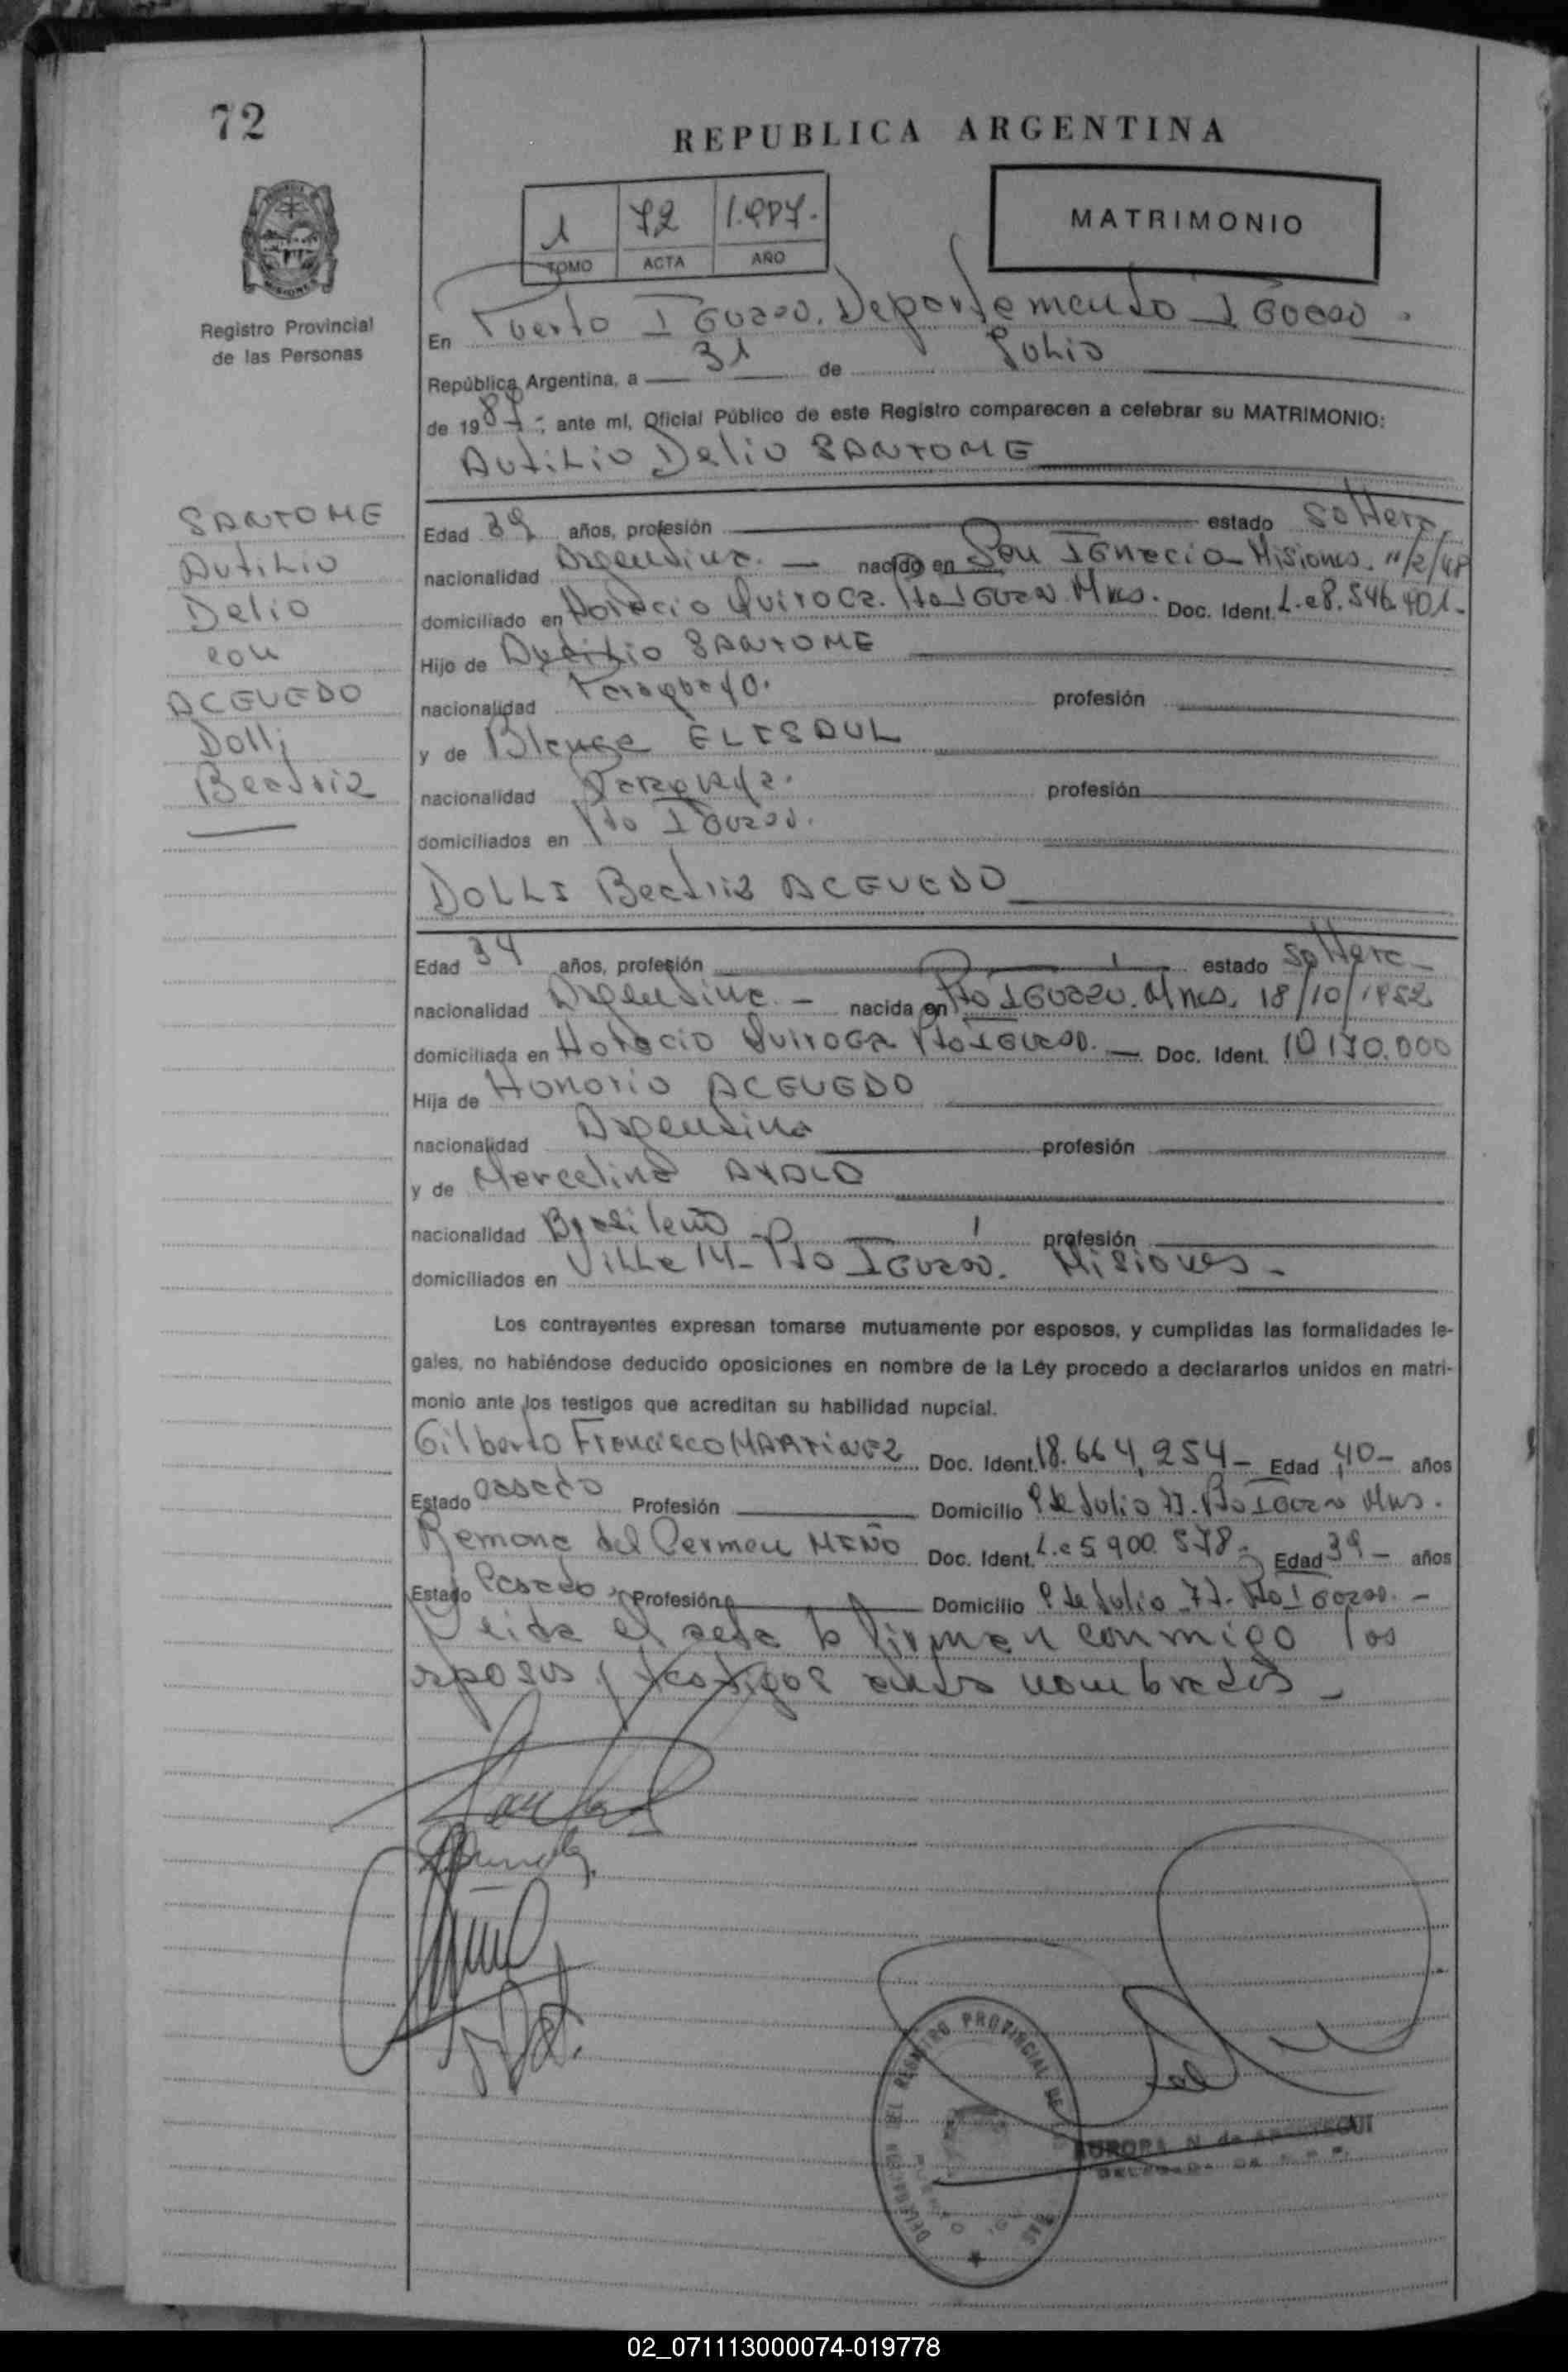 72
REPUBLICA ARGENTINA
1 72 1.987.-
TOMO ACTA AÑO
MATRIMONIO
Registro Provincial
de las Personas
En Puerto IGuazu. Departamento IGuazu.
República Argentina, a 31 de Julio
de 1987-; ante mí, Oficial Público de este Registro comparecen a celebrar su MATRIMONIO:
Autilio Delio SANTOME
SANTOME
Autilio
Delio
con
ACEVEDO
Dolli
Beatriz
Edad 39 años, profesión estado soltero
nacionalidad Argentina. — nacido en San IGnacio Misiones. 11/2/48
domiciliado en Horacio Quiroga. Pto IGuazu Mnes. Doc. Ident. L.e 8.546.401-
Hijo de Autilio SANTOME
nacionalidad Paraguayo. profesión
y de Blanca ELISAUL
nacionalidad Paraguaya. profesión
domiciliados en Pto IGuazu.
DOLLI Beatriz ACEVEDO
Edad 34 años, profesión estado soltera
nacionalidad Argentina. — nacida en Pto IGuazu. Mnes. 18/10/1952
domiciliada en Horacio Quiroga Pto IGuazu. — Doc. Ident. 10.170.000
Hija de Honorio ACEVEDO
nacionalidad Argentina profesión
y de Marcelina AYALA
nacionalidad Brasileña profesión
domiciliados en Villa 14- Pto IGuazu. Misiones-
Los contrayentes expresan tomarse mutuamente por esposos, y cumplidas las formalidades le-
gales, no habiéndose deducido oposiciones en nombre de la Ley procedo a declararlos unidos en matri-
monio ante los testigos que acreditan su habilidad nupcial.
Gilberto Francisco MARTINEZ Doc. Ident. 18.664.254- Edad 40- años
Estado casado Profesión Domicilio 9 de Julio 77. Pto IGuazu Mnes.
Ramona del Carmen MIÑO Doc. Ident. L.e 5.900.578- Edad 39- años
Estado Casada Profesión Domicilio 9 de Julio 77- Pto IGuazu. -
Leida el acta la firman conmigo los
esposos y testigos antes nombrados -
DELEGACION DEL REGISTRO PROVINCIAL DE LAS
AURORA N. de
DELEGADA DE R.P.P.
02_071113000074-019778